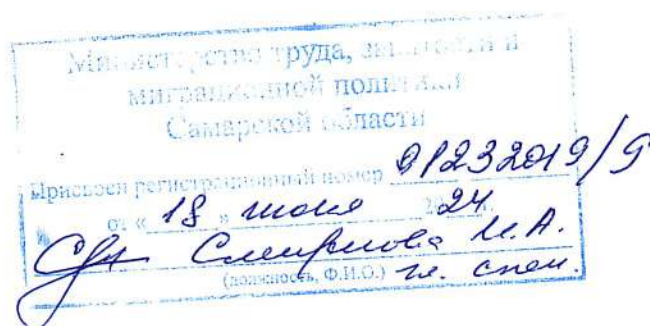 Министерство труда, занятости и
миграционной политики
Самарской области
Присвоен регистрационный номер 01232019/9
от « 18 » июня 2024 г.
Смирнова И.А.
(должность, Ф.И.О.) гл. спец.